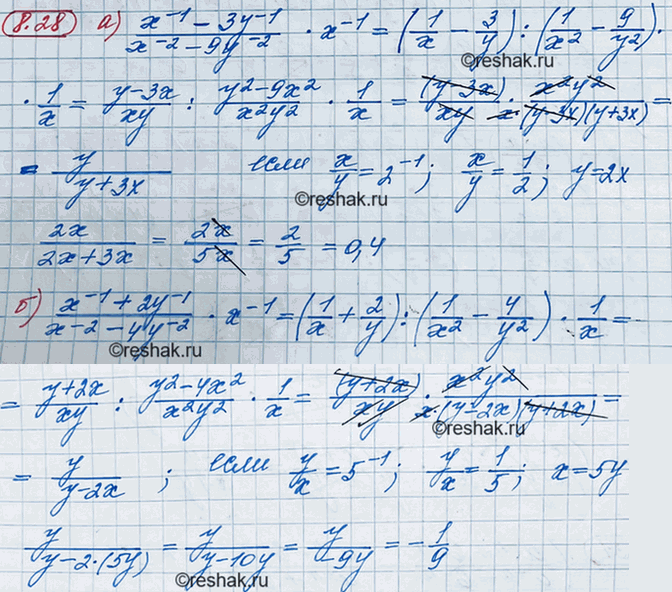 8.28 а) (x⁻¹ − 3y⁻¹)/(x⁻² − 9y⁻²) · x⁻¹ = (1/x − 3/y) : (1/x² − 9/y²) ·
©reshak.ru
· 1/x = (y−3x)/xy : (y²−9x²)/x²y² · 1/x = (y−3x)/xy · x²y²/x·(y−3x)(y+3x) =
= y/(y+3x) если x/y = 2⁻¹; x/y = 1/2; y=2x
©reshak.ru
2x/(2x+3x) = 2x/5x = 2/5 = 0,4
б) (x⁻¹ + 2y⁻¹)/(x⁻² − 4y⁻²) · x⁻¹ = (1/x + 2/y) : (1/x² − 4/y²) · 1/x =
©reshak.ru
= (y+2x)/xy : (y²−4x²)/x²y² · 1/x = (y+2x)/xy · x²y²/x·(y−2x)(y+2x) =
©reshak.ru
= y/(y−2x) ; если y/x = 5⁻¹; y/x = 1/5; x=5y
y/(y−2·(5y)) = y/(y−10y) = y/−9y = −1/9
©reshak.ru